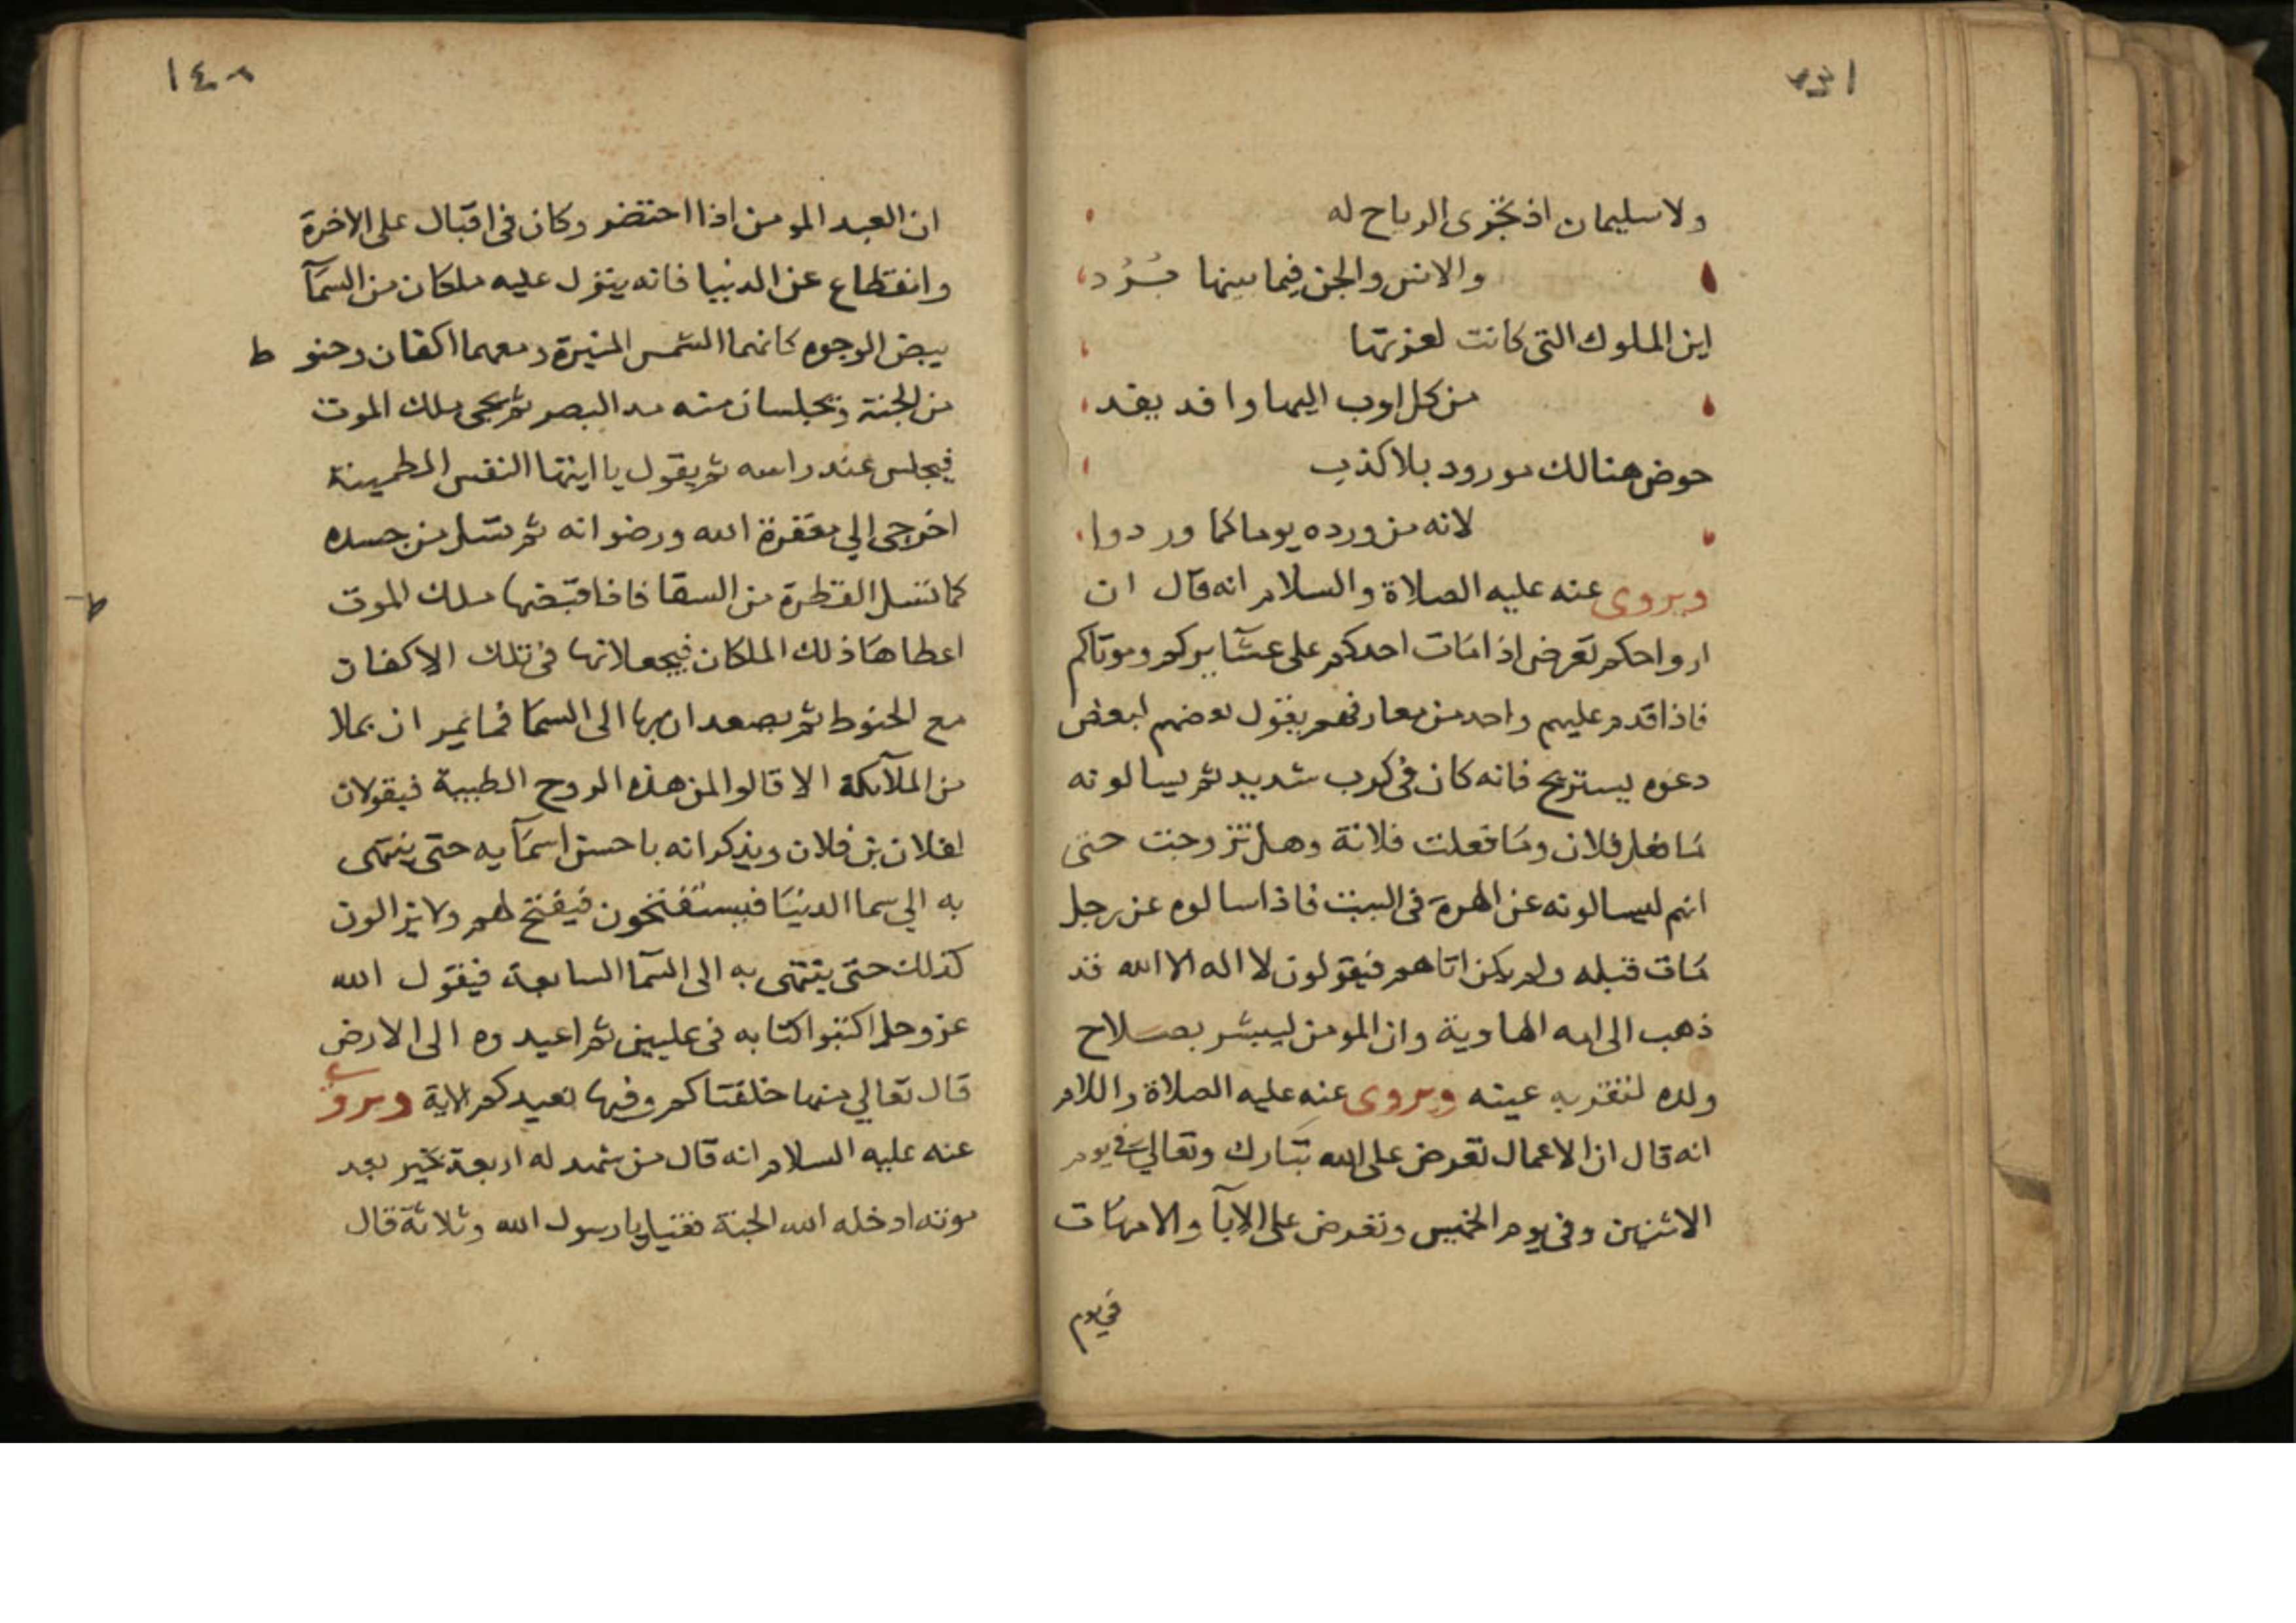 ولا سليمان اذ تجرى الرياح له
والانس والجن فيما بينها بُرُد
اين الملوك التى كانت لعزتها
من كل اوب اليها وافد يفد
حوض هنالك مورود بلا كذب
لانه من ورده يوما كما وردوا
ويروى عنه عليه الصلاة والسلام انه قال ان
ارواحكم تعرض اذا مات احدكم على عشايركم وموتاكم
فاذا قدم عليهم واحد من معارفهم يقول بعضهم لبعض
دعوه يستريح فانه كان فى كرب شديد ثم يسالونه
ما فعل فلان وما فعلت فلانة وهل تزوجت حتى
انهم ليسالونه عن الهرة فى البيت فاذا سالوه عن رجل
مات قبله ولم يكن اتاهم فيقولون لا اله الا الله قد
ذهب الى امه الهاوية وان المومن ليبشر بصلاح
ولده لتقر به عينه ويروى عنه عليه الصلاة واللام
انه قال ان الاعمال تعرض على الله تبارك وتعالى فى يوم
الاثنين وفى يوم الخميس وتعرض على الابآ والامهات
فى يوم
١٤٠
ان العبد المومن اذا احتضر وكان فى اقبال على الاخرة
وانقطاع عن الدنيا فانه ينزل عليه ملكان من السمآ
بيض الوجوه كانهما الشمس المنيرة ومعهما اكفان وحنوط
من الجنة ويجلسان منه مد البصر ثم يجى ملك الموت
فيجلس عند راسه ثم يقول يا ايتها النفس المطمينة
اخرجى الي مغفرة الله ورضوانه ثم تسل من جسده
كما تسل القطرة من السقا فاذا قبضها ملك الموت
اعطاها ذلك الملكان فيجعلانها فى تلك الاكفان
مع الحنوط ثم يصعدان بها الى السما فما يمر ان بملا
من الملآيكة الا قالوا لمن هذه الروح الطيبة فيقولان
لفلان بن فلان ويذكرانه باحسن اسمآيه حتى ينتهى
به الي سما الدنيا فيستفتحون فيفتح لهم ولا يزالون
كذلك حتى ينتهى به الى السمآ السابعة فيقول الله
عز وجل اكتبوا كتابه فى عليين ثم اعيدوه الى الارض
قال تعالي منها خلقناكم وفيها نعيدكم الاية ويروى
عنه عليه السلام انه قال من شهد له اربعة بخير بعد
موته ادخله الله الجنة فقيل يا رسول الله وثلاثة قال